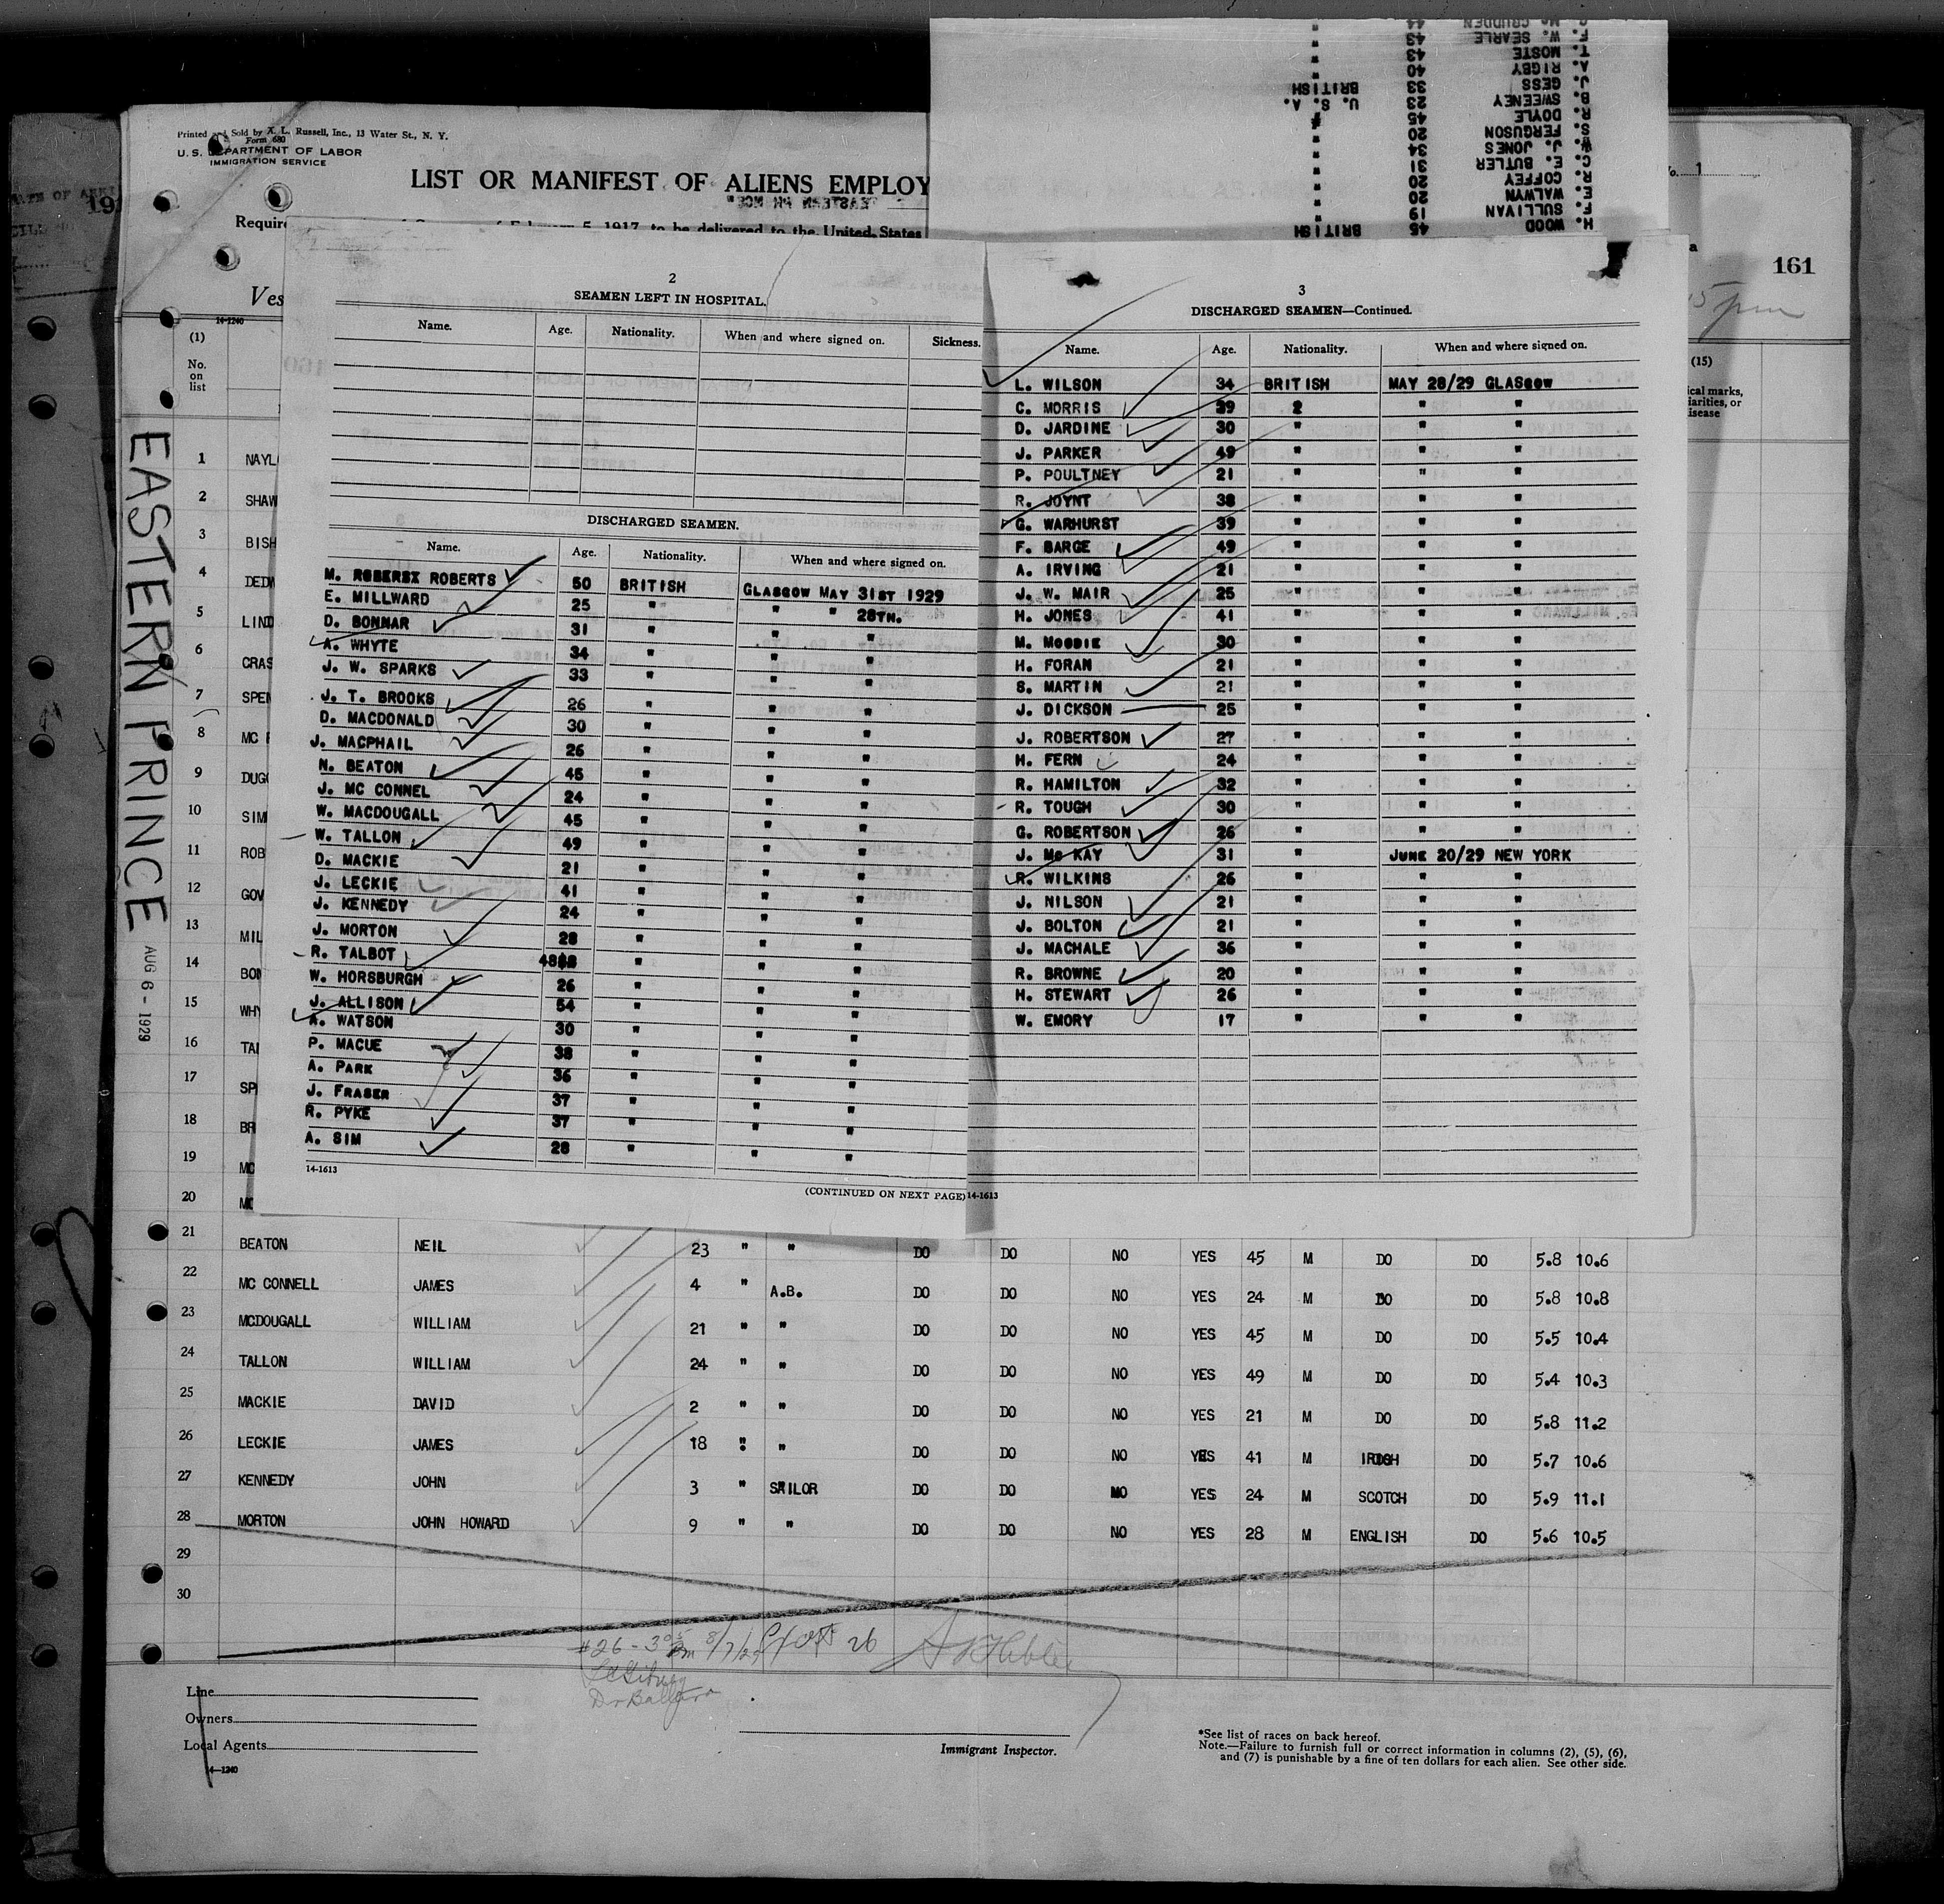 Printed and Sold by X. L. Russell, Inc., 13 Water St., N. Y.
Form 680
U. S. DEPARTMENT OF LABOR
IMMIGRATION SERVICE
LIST OR MANIFEST OF ALIENS EMPLOY
"EASTERN PRINCE"
Require
February 5, 1917, to be delivered to the United States
Ves
14-1240
No. 1
161
5 pm
C. MC CRUDDEN 44 "
F. W. SEARLE 43 "
T. MOSTE 43 "
A. RIGBY 40 "
J. GESS 33 BRITISH
B. SWEENEY 23 U. S. A.
R. DOYLE 45 "
S. FERGUSON 20 "
W. J. JONES 34 "
C. E. BUTLER 31 "
R. COFFEY 20 "
E. WALWYN 20 "
F. SULLIVAN 19 "
H. WOOD 45 BRITISH
EASTERN PRINCE
AUG 6 - 1929
2
SEAMEN LEFT IN HOSPITAL.
Name. Age. Nationality. When and where signed on. Sickness.
DISCHARGED SEAMEN.
Name. Age. Nationality. When and where signed on.
M. ROBERTS 50 BRITISH GLASGOW MAY 31ST 1929
E. MILLWARD 25 " " " 28TH.
D. BONNAR 31 " " "
A. WHYTE 34 " " "
J. W. SPARKS 33 " " "
J. T. BROOKS 26 " " "
D. MACDONALD 30 " " "
J. MACPHAIL 26 " " "
N. BEATON 45 " " "
J. MC CONNEL 24 " " "
W. MACDOUGALL 45 " " "
W. TALLON 49 " " "
D. MACKIE 21 " " "
J. LECKIE 41 " " "
J. KENNEDY 24 " " "
J. MORTON 28 " " "
R. TALBOT 48 " " "
W. HORSBURGH 26 " " "
J. ALLISON 54 " " "
A. WATSON 30 " " "
P. MACUE 38 " " "
A. PARK 36 " " "
J. FRASER 37 " " "
R. PYKE 37 " " "
A. SIM 28 " " "
14-1613
(CONTINUED ON NEXT PAGE)
3
DISCHARGED SEAMEN—Continued.
Name. Age. Nationality. When and where signed on.
L. WILSON 34 BRITISH MAY 28/29 GLASGOW
C. MORRIS 39 2 " "
D. JARDINE 30 " " "
J. PARKER 49 " " "
P. POULTNEY 21 " " "
R. JOYNT 38 " " "
G. WARHURST 39 " " "
F. BARGE 49 " " "
A. IRVING 21 " " "
J. W. MAIR 25 " " "
H. JONES 41 " " "
M. MOODIE 30 " " "
H. FORAN 21 " " "
S. MARTIN 21 " " "
J. DICKSON 25 " " "
J. ROBERTSON 27 " " "
H. FERN 24 " " "
R. HAMILTON 32 " " "
R. TOUGH 30 " " "
G. ROBERTSON 26 " " "
J. MC KAY 31 " JUNE 20/29 NEW YORK
R. WILKINS 26 " " "
J. NILSON 21 " " "
J. BOLTON 21 " " "
J. MACHALE 36 " " "
R. BROWNE 20 " " "
H. STEWART 26 " " "
W. EMORY 17 " " "
14-1613
(1)
No.
on
list
(15)
ical marks,
iarities, or
isease
1 NAYL
2 SHAW
3 BISH
4 DEDW
5 LIND
6 CRAS
7 SPEN
8 MC
9 DUG
10 SIM
11 ROB
12 GOV
13 MIL
14 BON
15 WHY
16 TA
17 SP
18 BR
19 MC
20 MC
21 BEATON NEIL 23 " " DO DO NO YES 45 M DO DO 5.8 10.6
22 MC CONNELL JAMES 4 " A.B. DO DO NO YES 24 M DO DO 5.8 10.8
23 MCDOUGALL WILLIAM 21 " " DO DO NO YES 45 M DO DO 5.5 10.4
24 TALLON WILLIAM 24 " " DO DO NO YES 49 M DO DO 5.4 10.3
25 MACKIE DAVID 2 " " DO DO NO YES 21 M DO DO 5.8 11.2
26 LECKIE JAMES 18 " " DO DO NO YES 41 M IRISH DO 5.7 10.6
27 KENNEDY JOHN 3 " SAILOR DO DO NO YES 24 M SCOTCH DO 5.9 11.1
28 MORTON JOHN HOWARD 9 " " DO DO NO YES 28 M ENGLISH DO 5.6 10.5
29
30
#26 - 3 05 pm 8/7/29 26
Line
Owners
Local Agents
14-1240
Immigrant Inspector.
*See list of races on back hereof.
Note.—Failure to furnish full or correct information in columns (2), (5), (6),
and (7) is punishable by a fine of ten dollars for each alien. See other side.